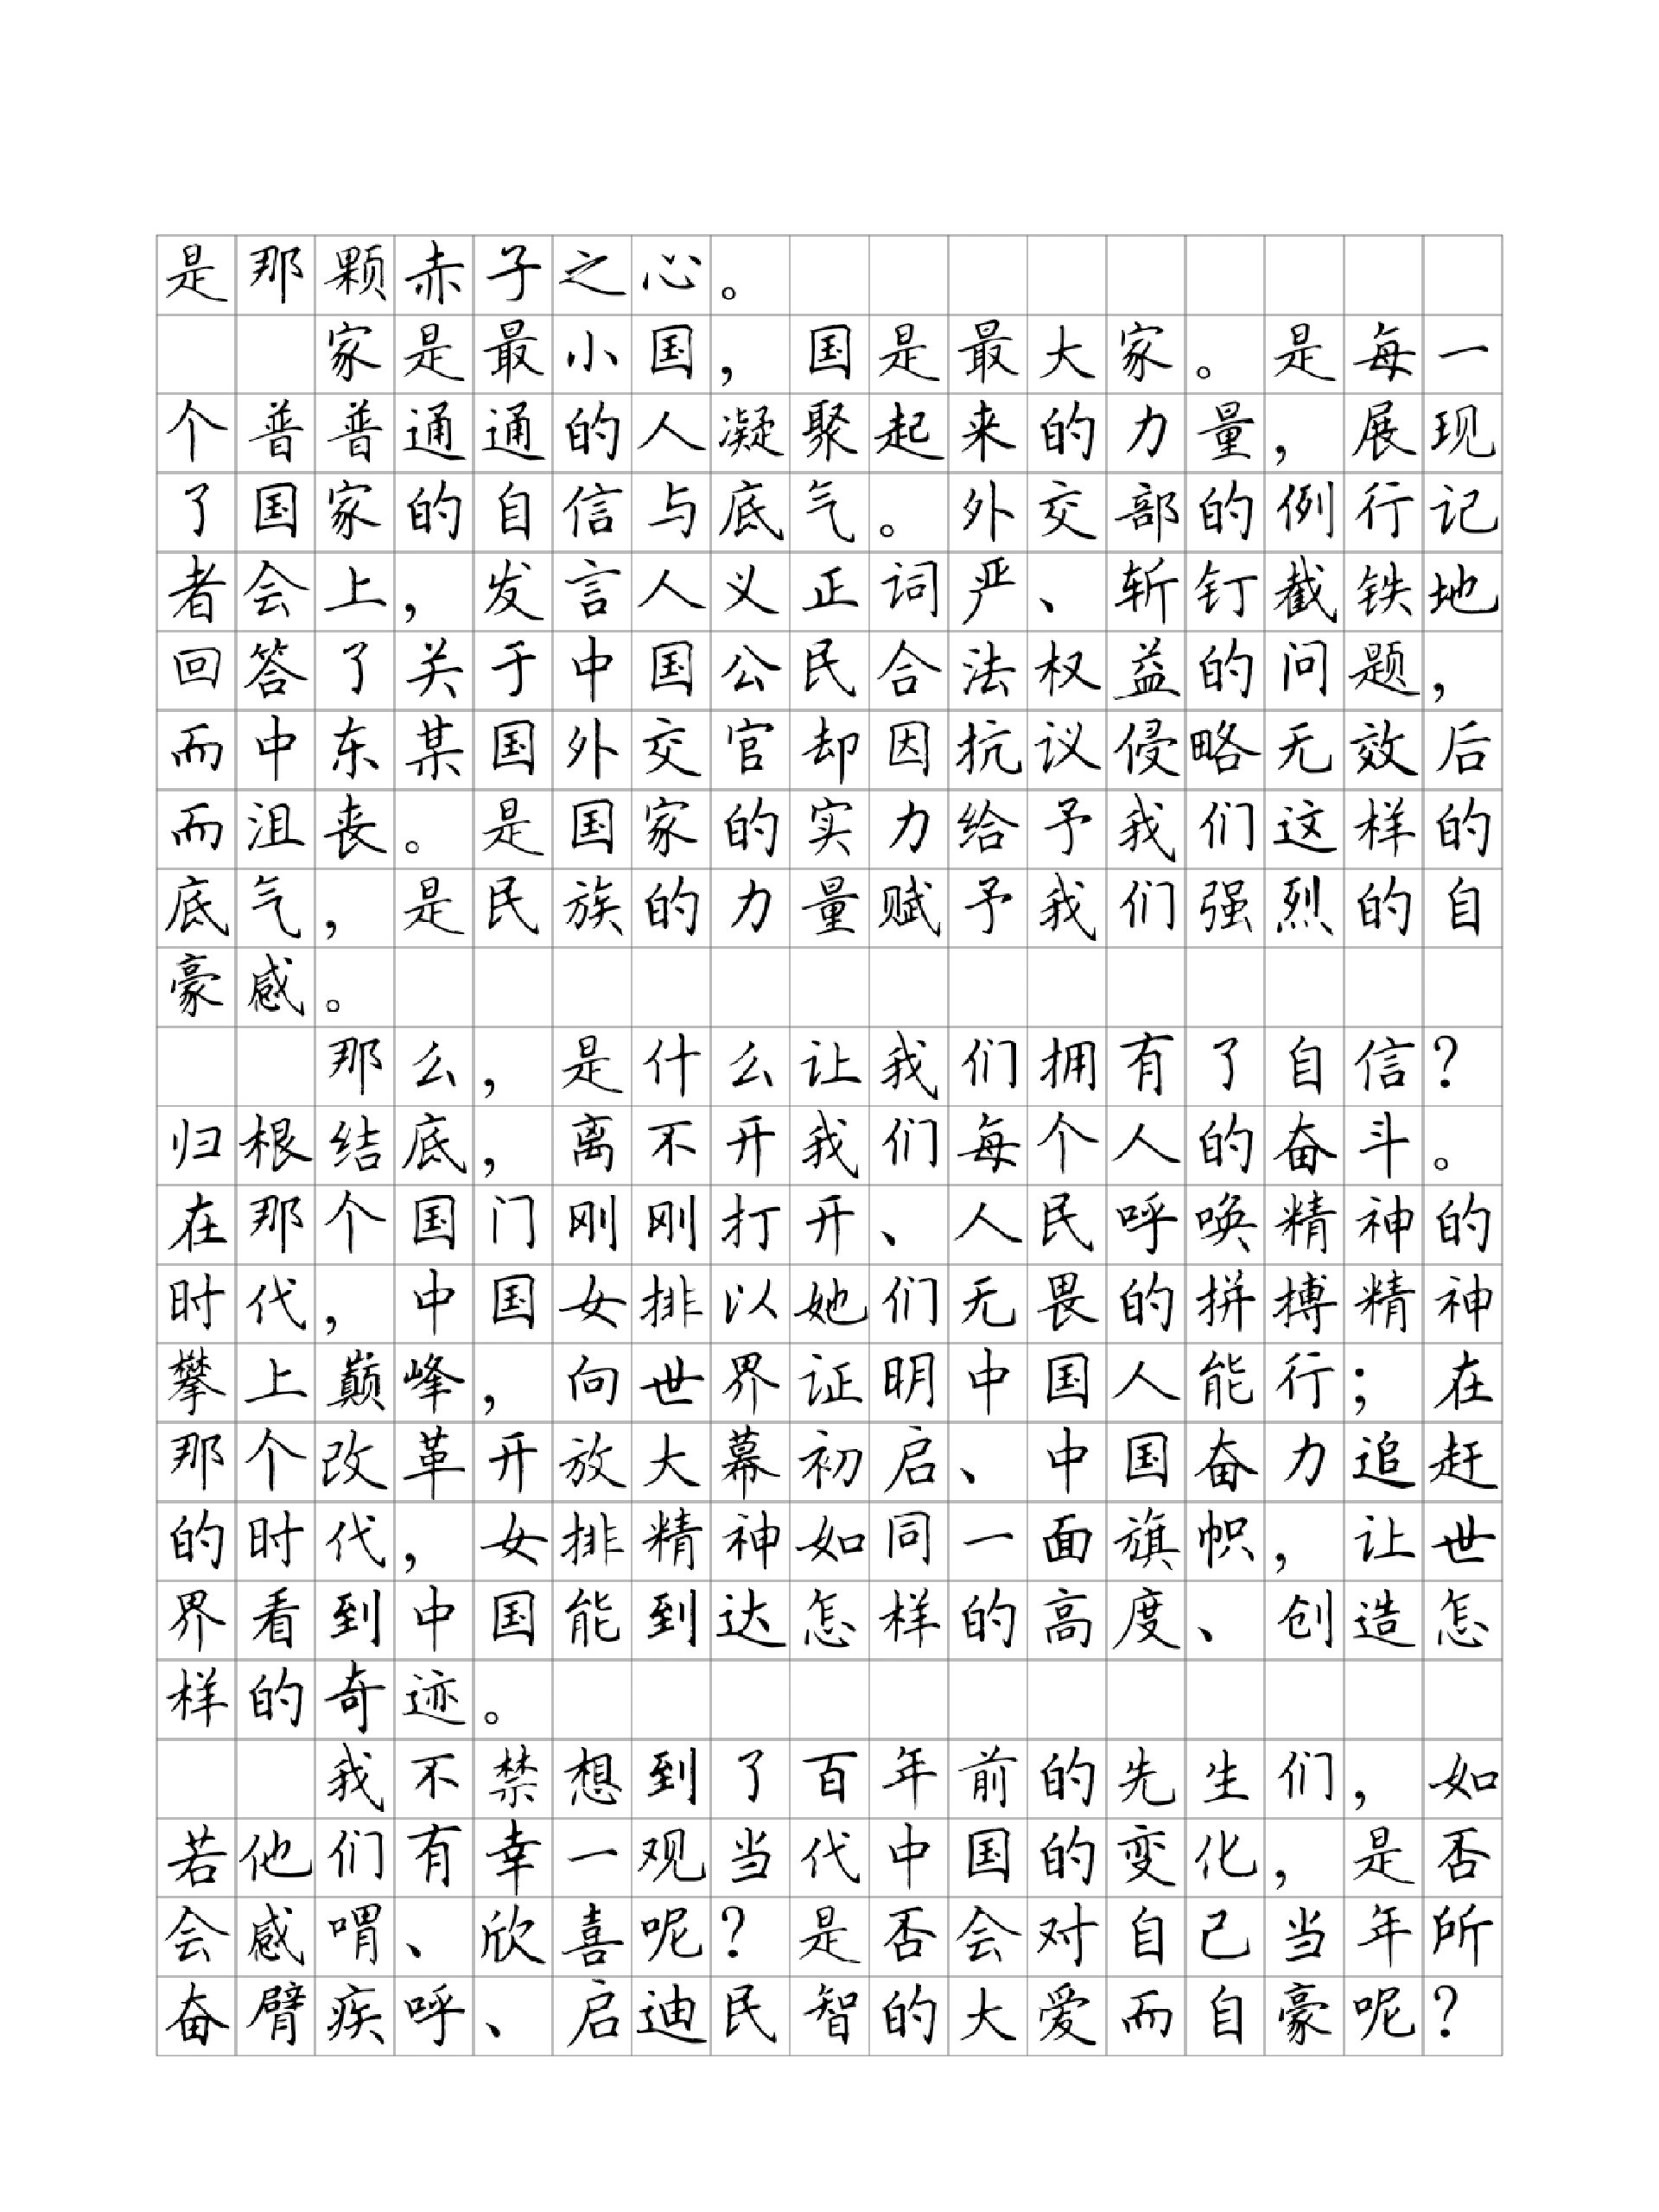 是那颗赤子之心。
家是最小国，国是最大家。是每一
个普普通通的人凝聚起来的力量，展现
了国家的自信与底气。外交部的例行记
者会上，发言人义正词严、斩钉截铁地
回答了关于中国公民合法权益的问题，
而中东某国外交官却因抗议侵略无效后
而沮丧。是国家的实力给予我们这样的
底气，是民族的力量赋予我们强烈的自
豪感。
那么，是什么让我们拥有了自信？
归根结底，离不开我们每个人的奋斗。
在那个国门刚刚打开、人民呼唤精神的
时代，中国女排以她们无畏的拼搏精神
攀上巅峰，向世界证明中国人能行；在
那个改革开放大幕初启、中国奋力追赶
的时代，女排精神如同一面旗帜，让世
界看到中国能到达怎样的高度、创造怎
样的奇迹。
我不禁想到了百年前的先生们，如
若他们有幸一观当代中国的变化，是否
会感喟、欣喜呢？是否会对自己当年所
奋臂疾呼、启迪民智的大爱而自豪呢？